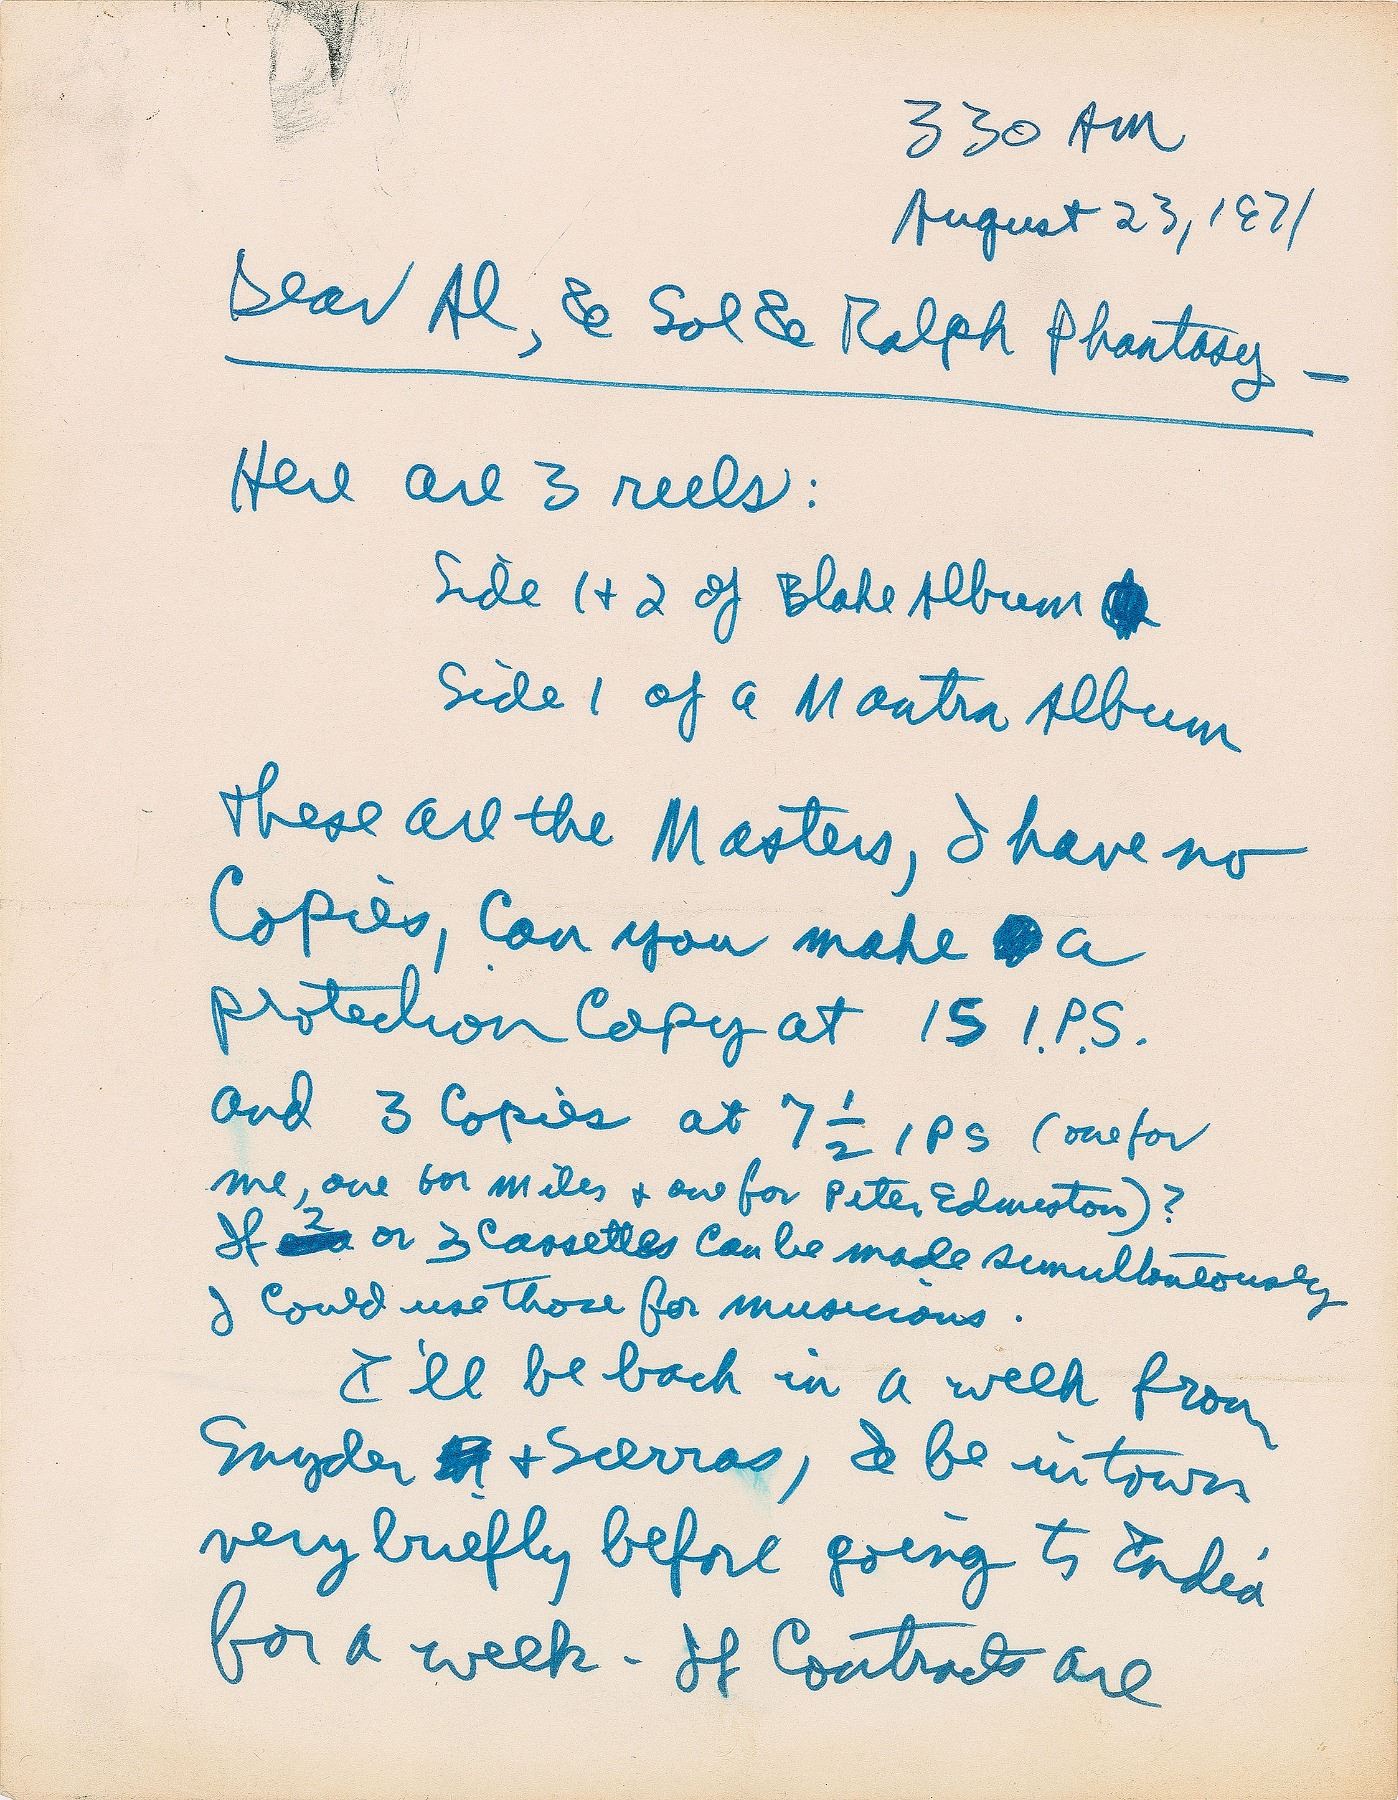 3 30 AM
August 23, 1971
Dear Al, & Sol & Ralph Phantasy —
Here are 3 reels:
Side 1 + 2 of Blake Album
Side 1 of a Mantra Album
These are the Masters, I have no
Copies, Can you make a
protection Copy at 15 I.P.S.
and 3 Copies at 7 1/2 IPS (one for
me, one for Miles + one for Peter Edmiston)?
If 2 or 3 Cassettes Can be made simultaneously
I Could use those for musicians.
I'll be back in a week from
Snyder + Sierras, & be in town
very briefly before going to India
for a week - If Contracts are